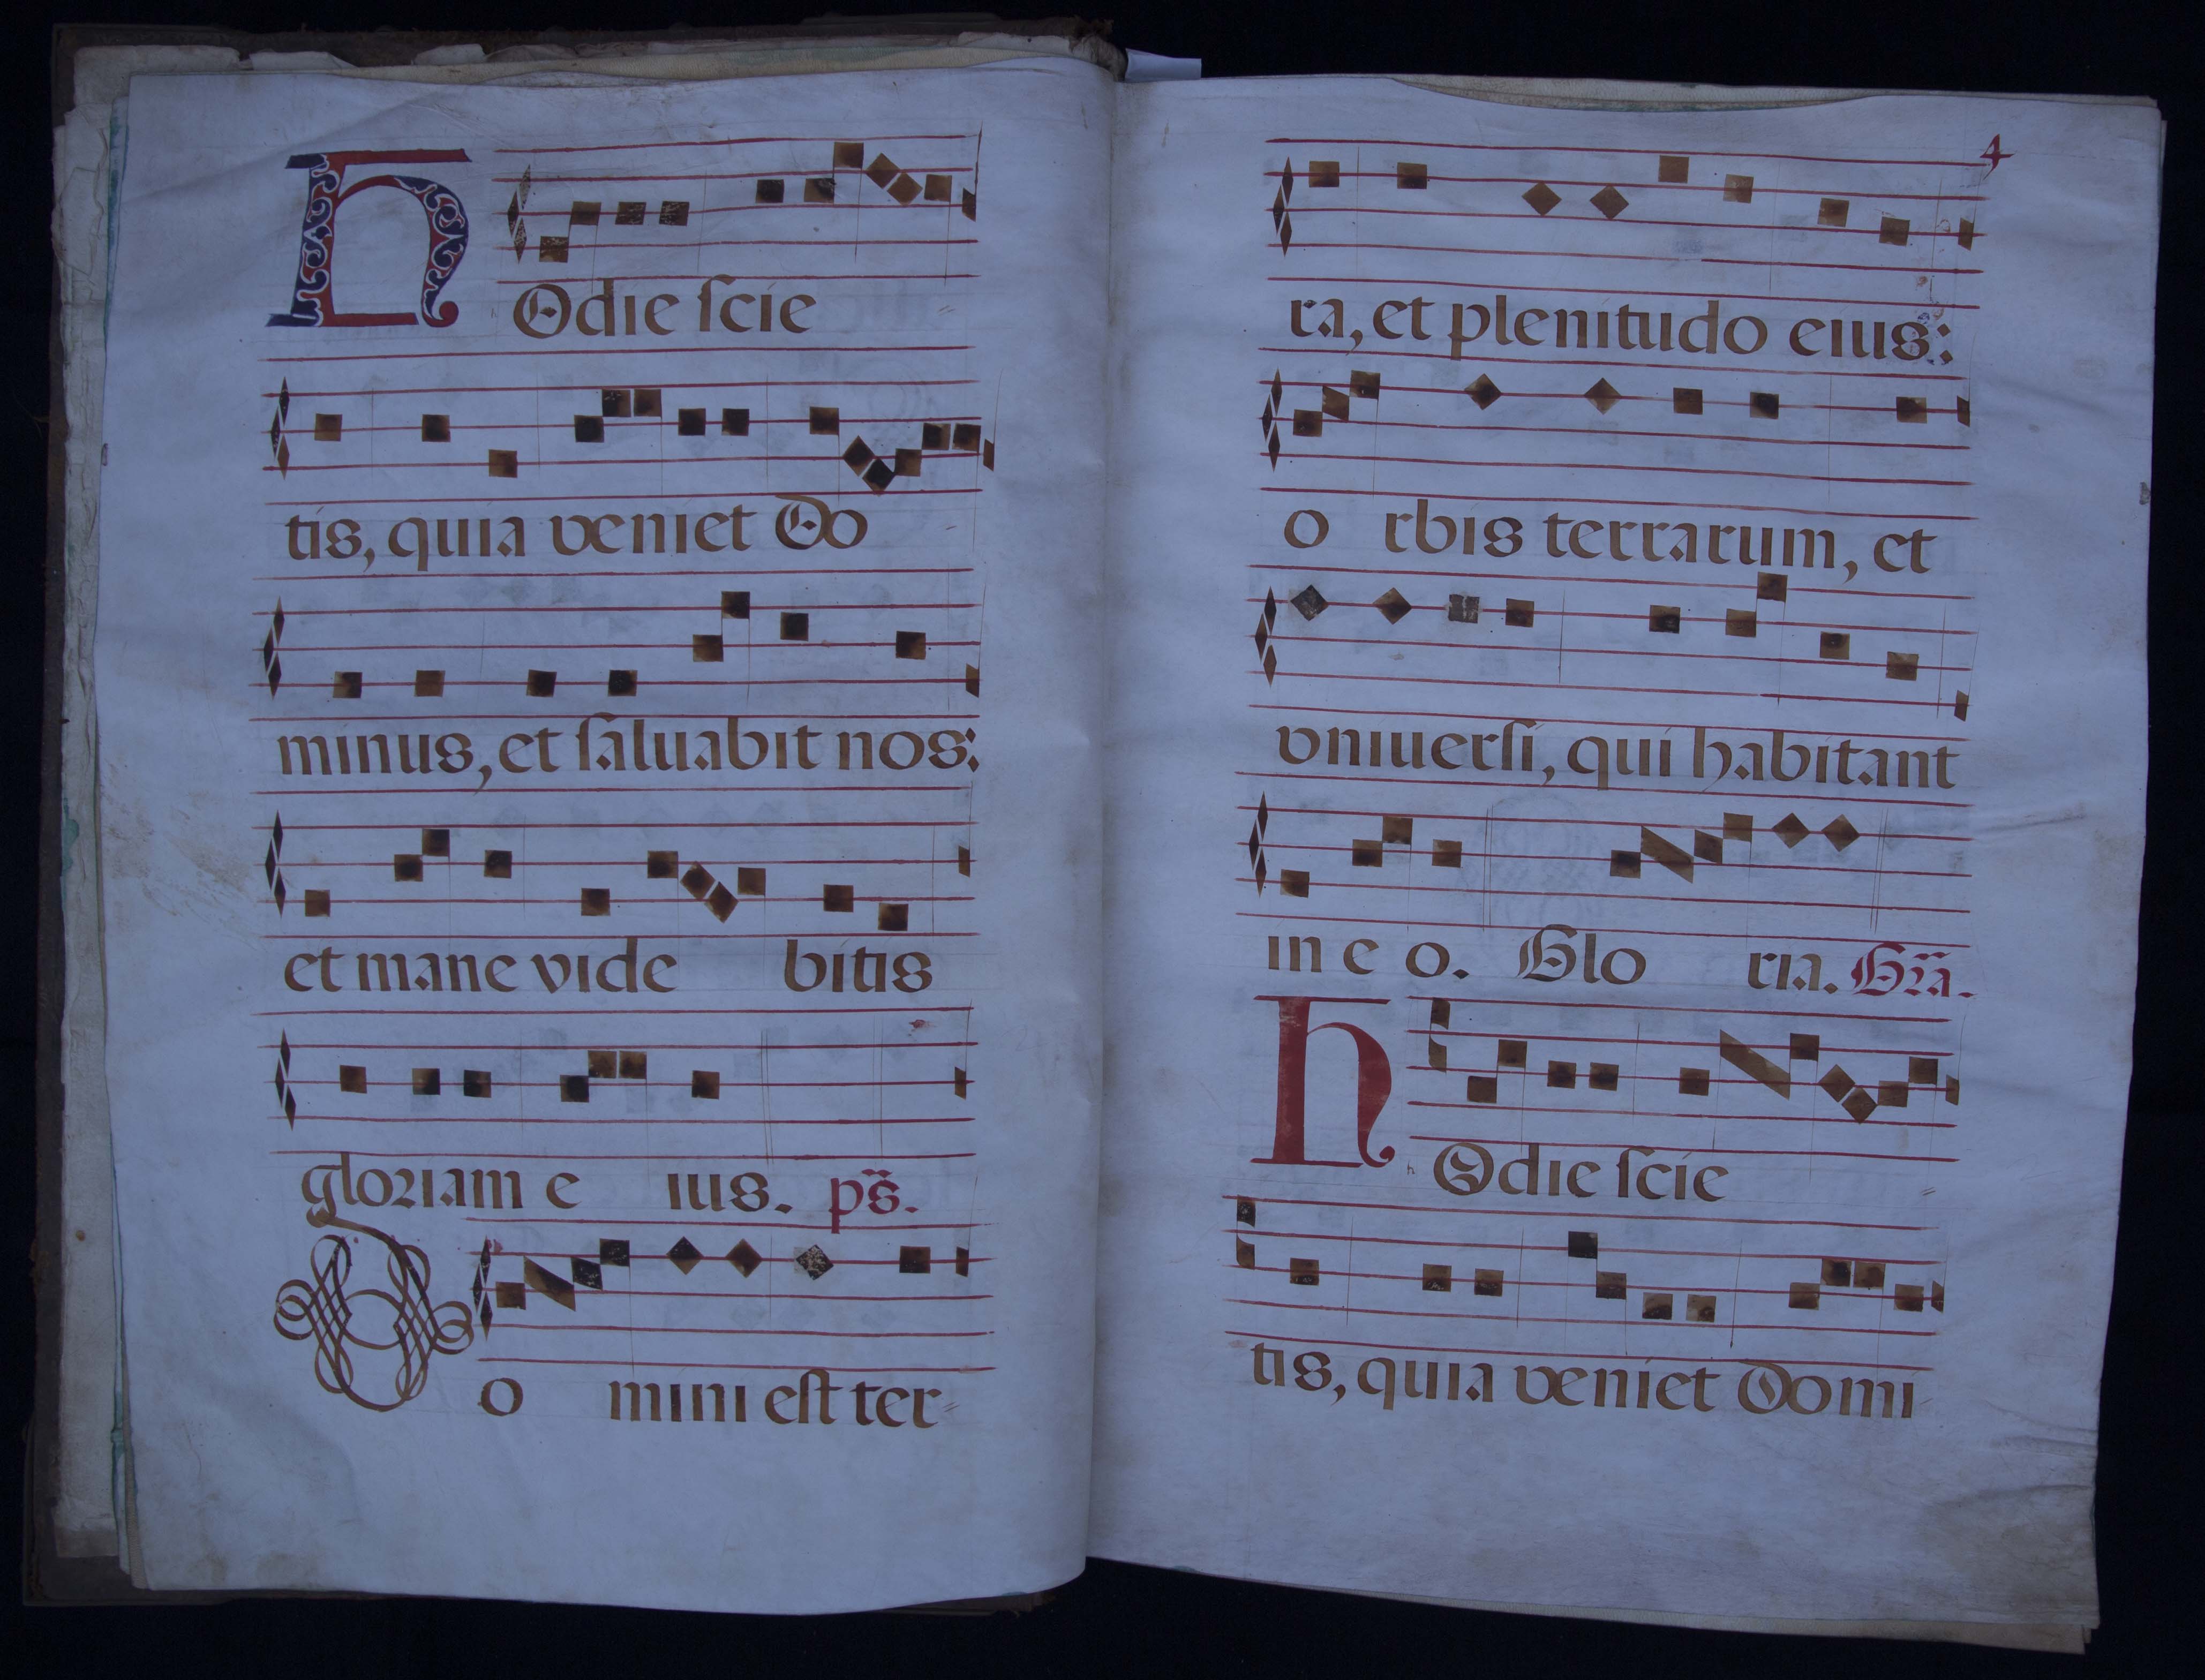 HOdie ſcie
tis, quia veniet Do
minus, et ſaluabit nos:
et mane vide bitis
gloriam e ius. ps̃.
DO mini eſt ter
4
ra, et plenitudo eius:
o rbis terrarum, et
vniuerſi, qui habitant
in e o. Glo ria. Gr̃a.
HOdie ſcie
tis, quia veniet Domi